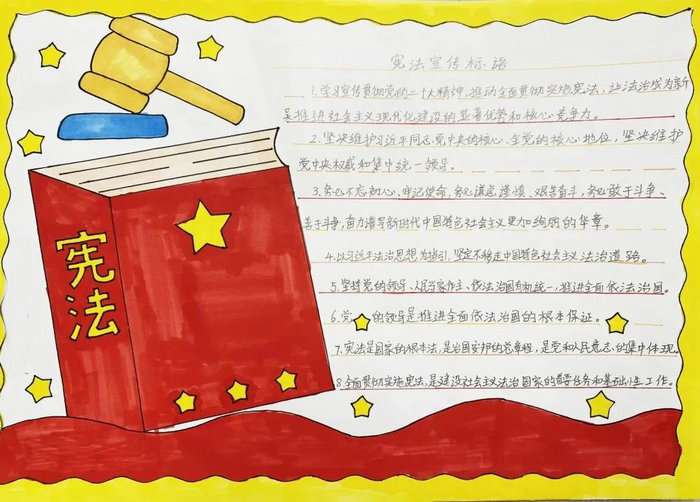 宪法
宪法宣传标语
1.学习宣传贯彻党的二十大精神，推动全面贯彻实施宪法，让法治成为新
是推进社会主义现代化建设的显著优势和核心竞争力。
2.坚决维护习近平同志党中央的核心、全党的核心地位，坚决维护
党中央权威和集中统一领导。
3.务必不忘初心、牢记使命，务必谦虚谨慎、艰苦奋斗，务必敢于斗争、
善于斗争，奋力谱写新时代中国特色社会主义更加绚丽的华章。
4.以习近平法治思想为指引，坚定不移走中国特色社会主义法治道路。
5.坚持党的领导、人民当家作主、依法治国有机统一，推进全面依法治国。
6.党的领导是推进全面依法治国的根本保证。
7.宪法是国家的根本法，是治国安邦的总章程，是党和人民意志的集中体现。
8.全面贯彻实施宪法，是建设社会主义法治国家的首要任务和基础性工作。